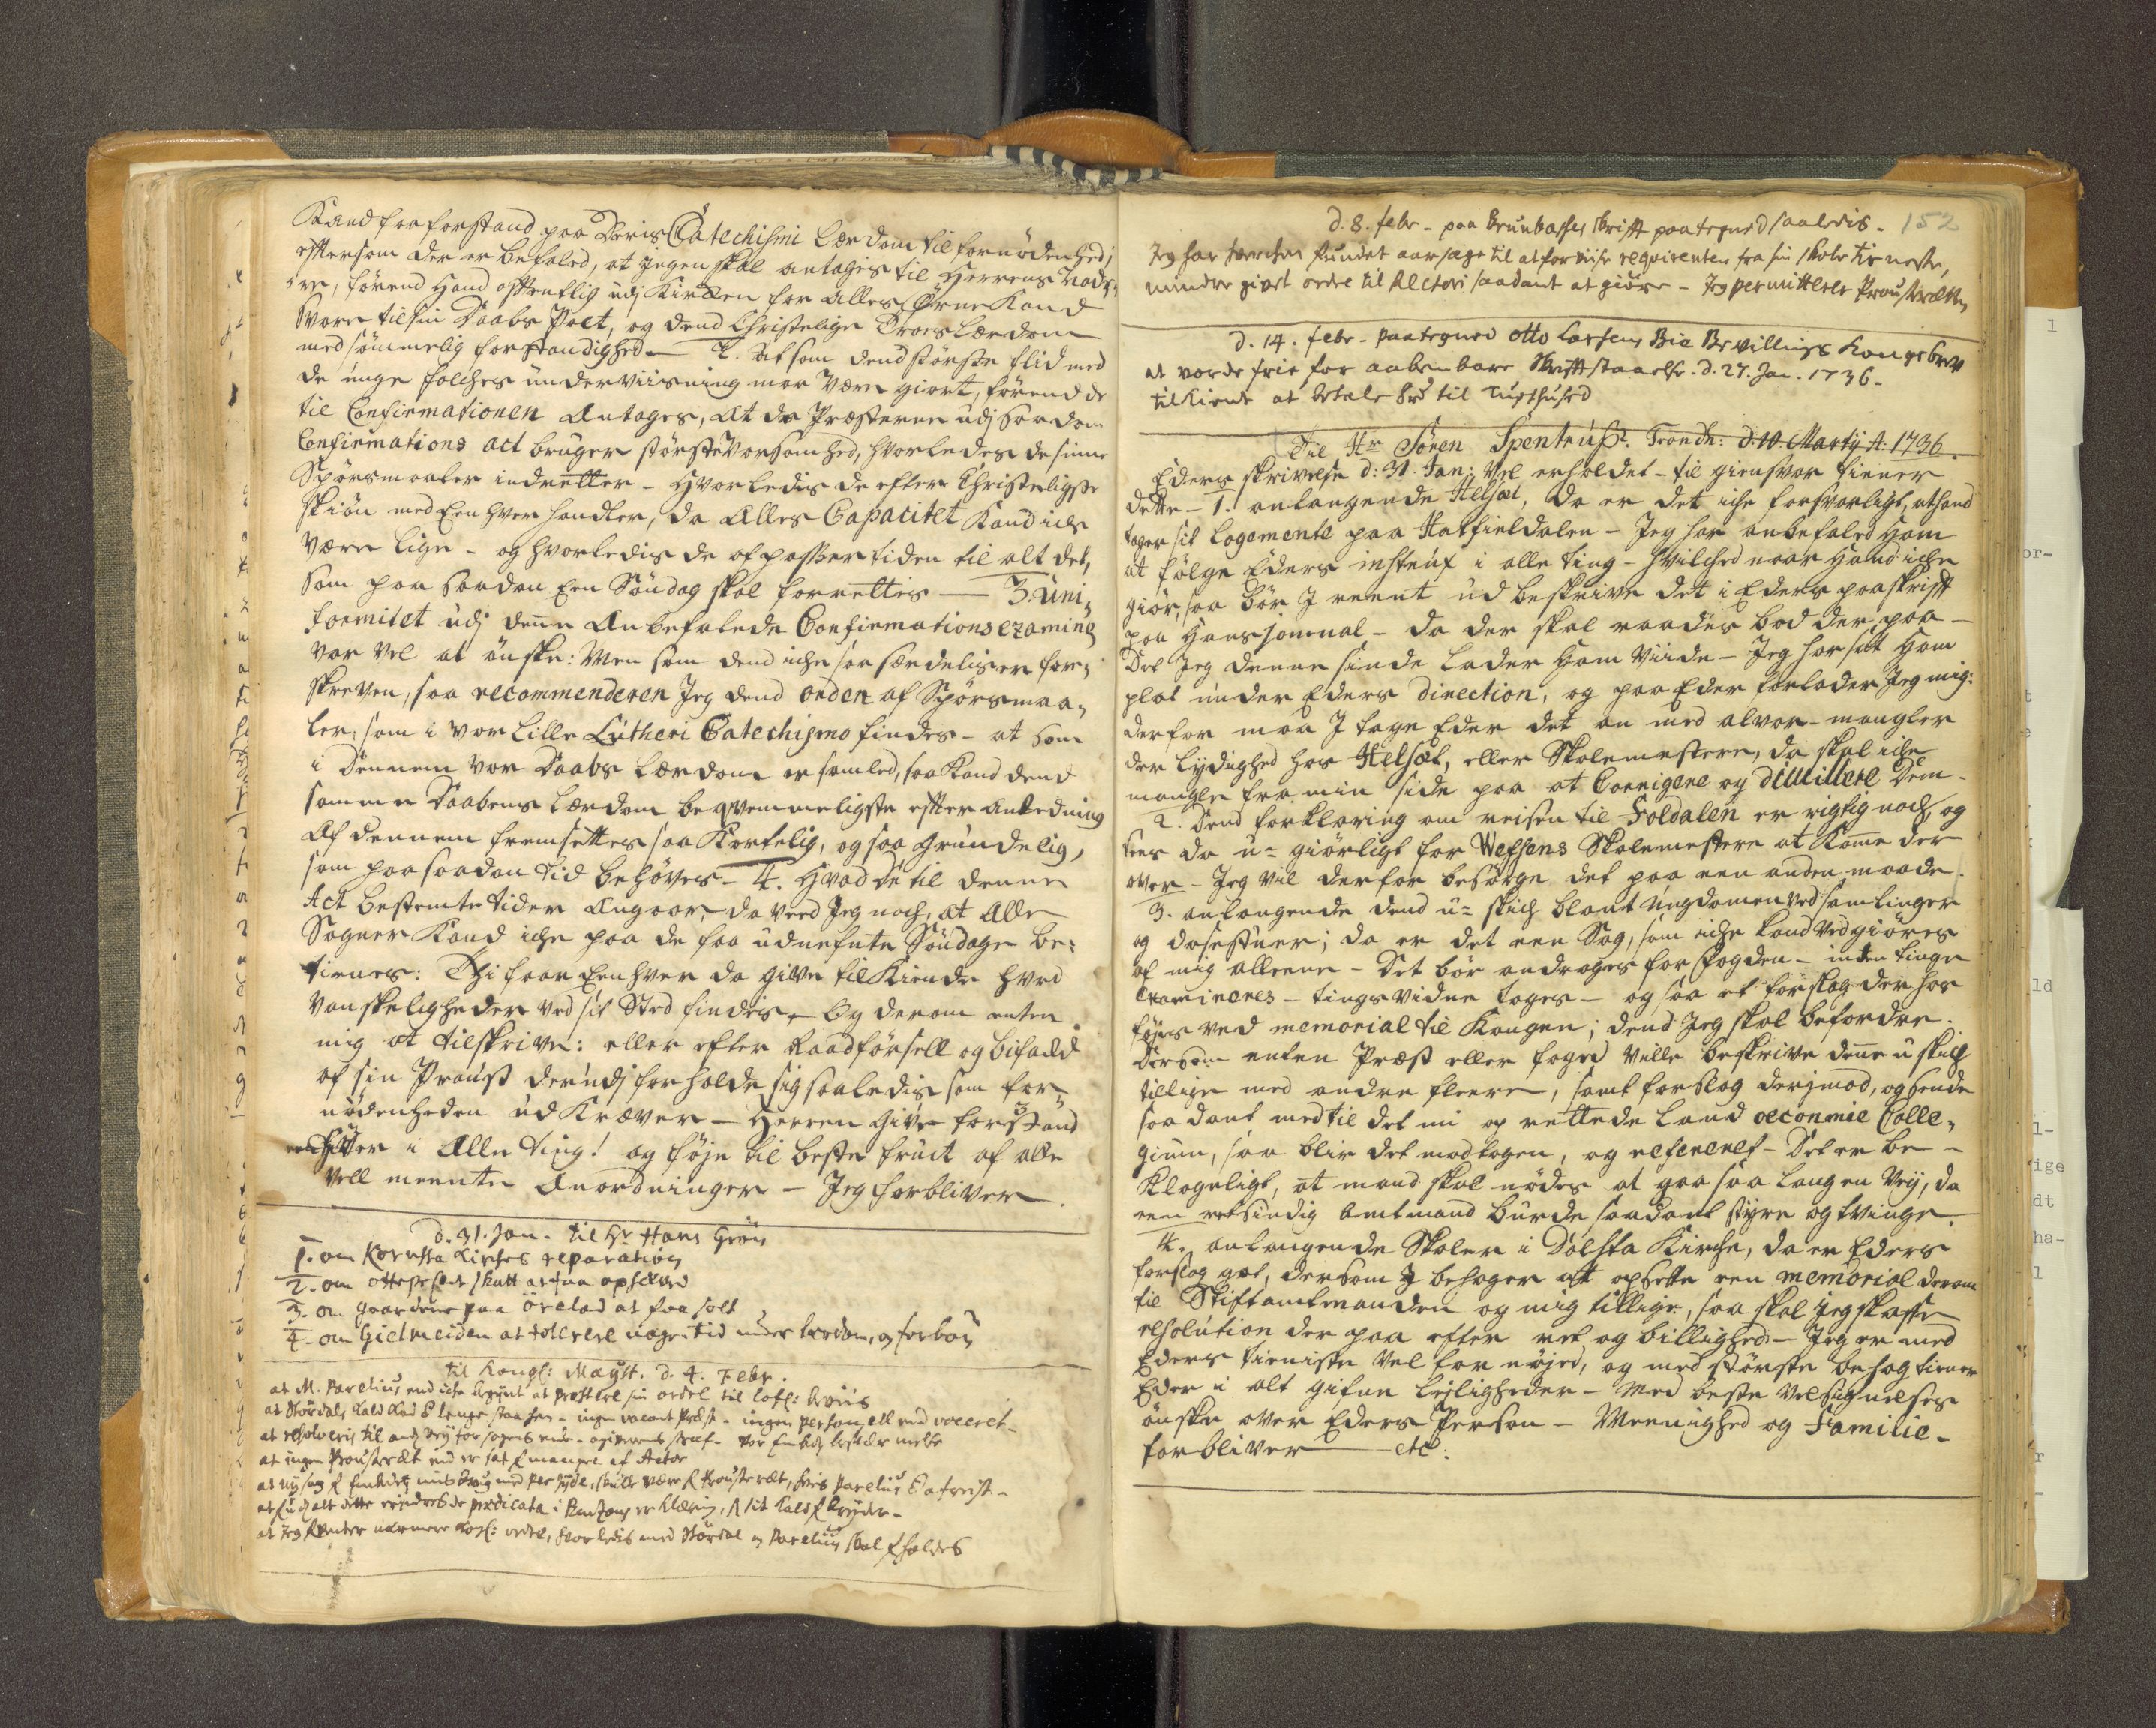 Kand faa forstand paa Deris Catechismi Lærdom til fornødenhed;
eftersom der er befaled, at Ingen skal antages til Herrens Nadv-
ere, førend Hand offentlig udj Kirken for Alles Ørne Kand
svare til sin Daabs Pact, og dend Christelige Troes Lærdom
med sømmelig forstandighed — 2. Alsom dend største flid med
de unge folches underviisning maa være giort, førend de
til Confirmationen Antages, At da Præsterne udj saadan
Confirmations act bruger største Vorsomhed, hvorledes de sinne
Spørsmaaler indretter — Hvorledis de efter Christeligste
skiøn med Een hver handler, da Alles Capacitet Kand iche
være lige — og hvorledis de afpasser tiden til alt det,
som paa saadan Een Søndag skal forrettis — 3. Uni-
formitet udj denne Anbefalede Confirmations examine
var vel at ønske: Men som dend iche saa særdelis er fore-
skreven, saa recommenderer Jeg dend orden af Spørsmaa-
ler, som i vor Lille Lutheri Catechismo findes — at som
i Dennem vor Daabs Lærdom er samled, saa Kand dend
samme Daabens Lærdom beqvemmeligste efter Anledning
Af dennem fremsettes saa Kortelig, og saa Grundelig,
som paa saadan tid behøves — 4. Hvad de til denne
Act bestemte tider Angaar, da veed Jeg noch, at Alle
Sogner Kand iche paa de faa udnefnte Søndage be-
tienes: Thi faar Een hver da give tilkiende hvad
vanskeligheder ved sit Sted findis, Og derom enten
mig at tilskrive: eller efter Raadførsell og bifald
af sin Proust derudj forholde sig saaledis som for-
nødenheden udkræver — Herren Give forstand
 i Alle ting! og føje til beste fruct af alle
Vell meente Anordninger — Jeg forbliver
d. 31. Jan. til Hr Hans Grøn
1. om Kornsta Kirkes reparation
2. om skatt at faa
3. om Gaardene paa Ørelad at faa solt
4. om Gielmeiden at tolerere nogen tid under Lærdom, og forbøn
Til Kongl: Mayst. d. 4. Febr.
at M. Parelius end iche begynt at prostere sin ordre til Lofl:
at Størdals Kald Kand E lenge staa hen — ingen vacant Præst — ingen personell end voceret —
at resolveris til
at ingen Prousteræt end er sat f mangel af Actor
at
at
at Jeg venter nærmere Kgl: ordre, hvorledis med Størdal og Parelius skal f holdes
152
d. 8. febr — paa Brunbasses skrifft paategned saaledis —
Jeg har hverchen fundet aarsage til at forviise reqvirenten fra sin skole tieneste,
mindre giort ordre til Rectori saadant at giøre — Jeg permitterer Prousteretten
d. 14. febr — paategned Otto Larsens Bie Bevillings Kongebrev
at vorde frie for aabenbare skrifftstaaelse. d. 27. Jan. 1736.
tilkiende at betale 8 rd til Tugthused
Til Hr Søren Spentrup. Trondh: d. 10. Martij A. 1736.
Eders skrivelse d: 31. Jan: Vel erholdet — til giensvar tiener
dette — 1. anlangende Helsæt, da er det iche forsvarligt, at hand
tager sit Logemente paa Hatfieldalen — Jeg har anbefaled Ham
at følge Eders instrux i alle ting — hvilched naar Hand iche
giør, saa bør I reent ud beskrive det i Eders paaskrifft
paa Hans journal — da der skal raades bod der paa —
Det Jeg denne sinde lader Ham viide — Jeg har sat Ham
plat under Eders direction, og paa Eder forlader Jeg mig:
derfor maa I tage Eder det an med alvor — mangler
der Lydighed hos Helsæt, eller Skolemestere, da skal iche
mangle fra min side paa at Corrigere og dimittere dem —
2. Dend forklaring om reisen til Foldalen er rigtig noch, og
sees da u-giørligt for Wefsens Skolemestere at Komme der
over — Jeg vil derfor besørge det paa een anden maade.
3. anlangende dend u-skich blant Ungdomen ved samlinger
og dasestuer; da er det een Sag, som iche kand ved giøres
af mig alleene — Det bør andrages for fogden — inden tinge
Examineres — tings vidne tages — og saa et forslag der hos
føyes ved memorial til Kongen; dend Jeg skal befordre.
Dersom enten Præst eller foged ville beskrive denne uskich
tillige med andre fleere, samt forslag derjmod, og sende
saadant med til det ni oprettede Land oeconmie Colle-
gium, saa blir det modtagen, og refereret — Det er be-
klageligt, at mand skal nødes at gaa saa Langen Vej, da
een retsindig Amtmand burde saadant styre og tvinge.
4. anlangende Skolen i Dolsta Kirche, da er Eders
forslag got, dersom I behager at opsette een memorial derom
til Stiftamtmanden og mig tillige, saa skal Jeg skaffe
resolution der paa efter ret og billighed — Jeg er med
Eders tieniste vel fornøjed, og med største behag tiener
Eder i alt gifne Leiligheder — Med beste velsignelses
ønske over Eders Person — Meenighed og Familie —
forbliver — etc: